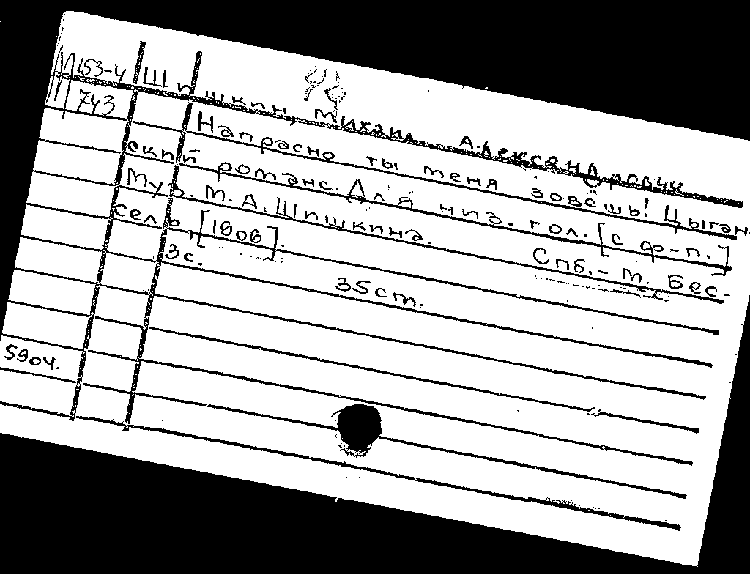 М 153-4
743
Шишкин, Михаил Александрович
Напрасно ты меня зовёшь! Цыган-
ский романс. Для низ. гол. [с ф-п.]
Муз. М.А. Шишкина. Спб.-М. Бес-
сель, [1906].
3с.
35ст.
5904.